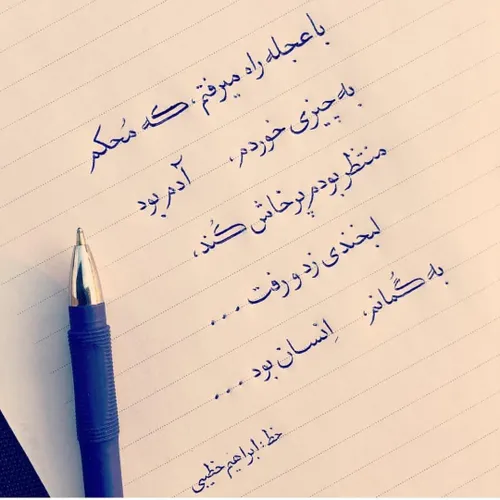 با عجله راه میرفتم، که مُحکم
به چیزی خوردم، آدم بود
منتظر بودم پرخاش کُند،
لبخندی زد و رفت ...
به گُمانم، اِنسان بود ...
خط: ابراهیم خطیبی